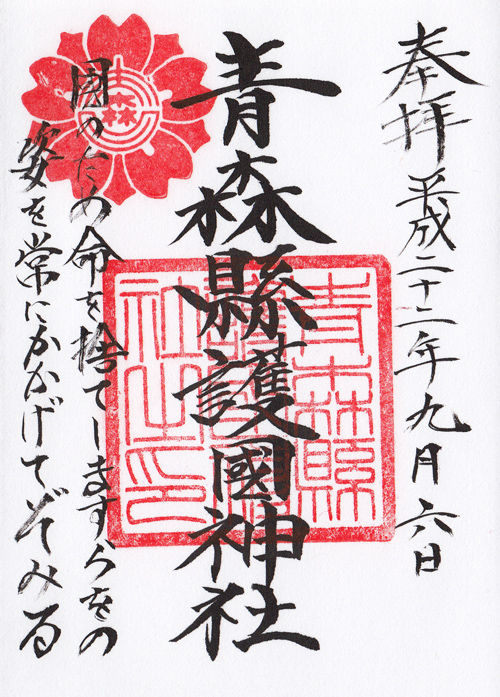 奉拝 平成二十二年九月六日
青森縣護國神社
國のため命を捨てしますらをの
姿を常にかかげてぞみる
青森縣
護國神
社之印